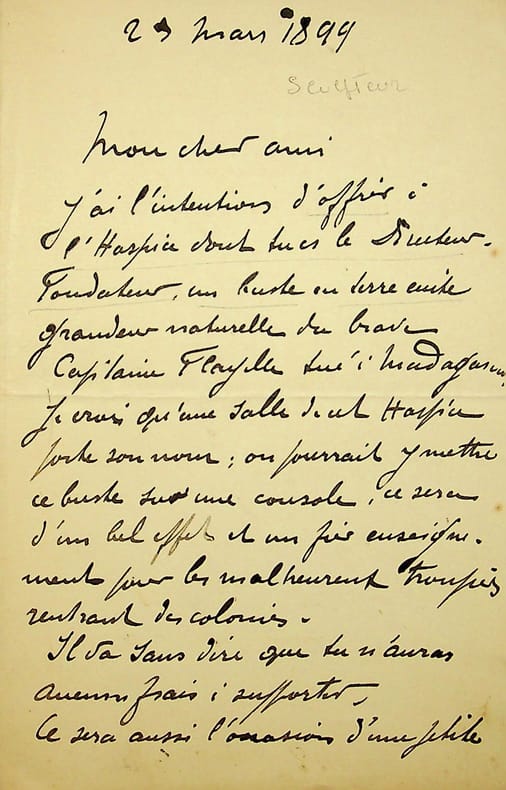 23 mars 1899
Sculpteur
Mon cher ami
J'ai l'intentions d'offrir à
l'Hospice dont tu es le Directeur-
Fondateur, un buste en terre cuite
grandeur naturelle du brave
Capitaine Flayelle tué à Madagascar,
Je crois qu'une salle de cet Hospice
porte son nom ; on pourrait y mettre
ce buste sur une console, ce sera
d'un bel effet et un fier enseigne-
ment pour les malheureux troupiers
rentrant des colonies.
Il va sans dire que tu n'auras
aucuns frais à supporter,
Ce sera aussi l'occasion d'une petite